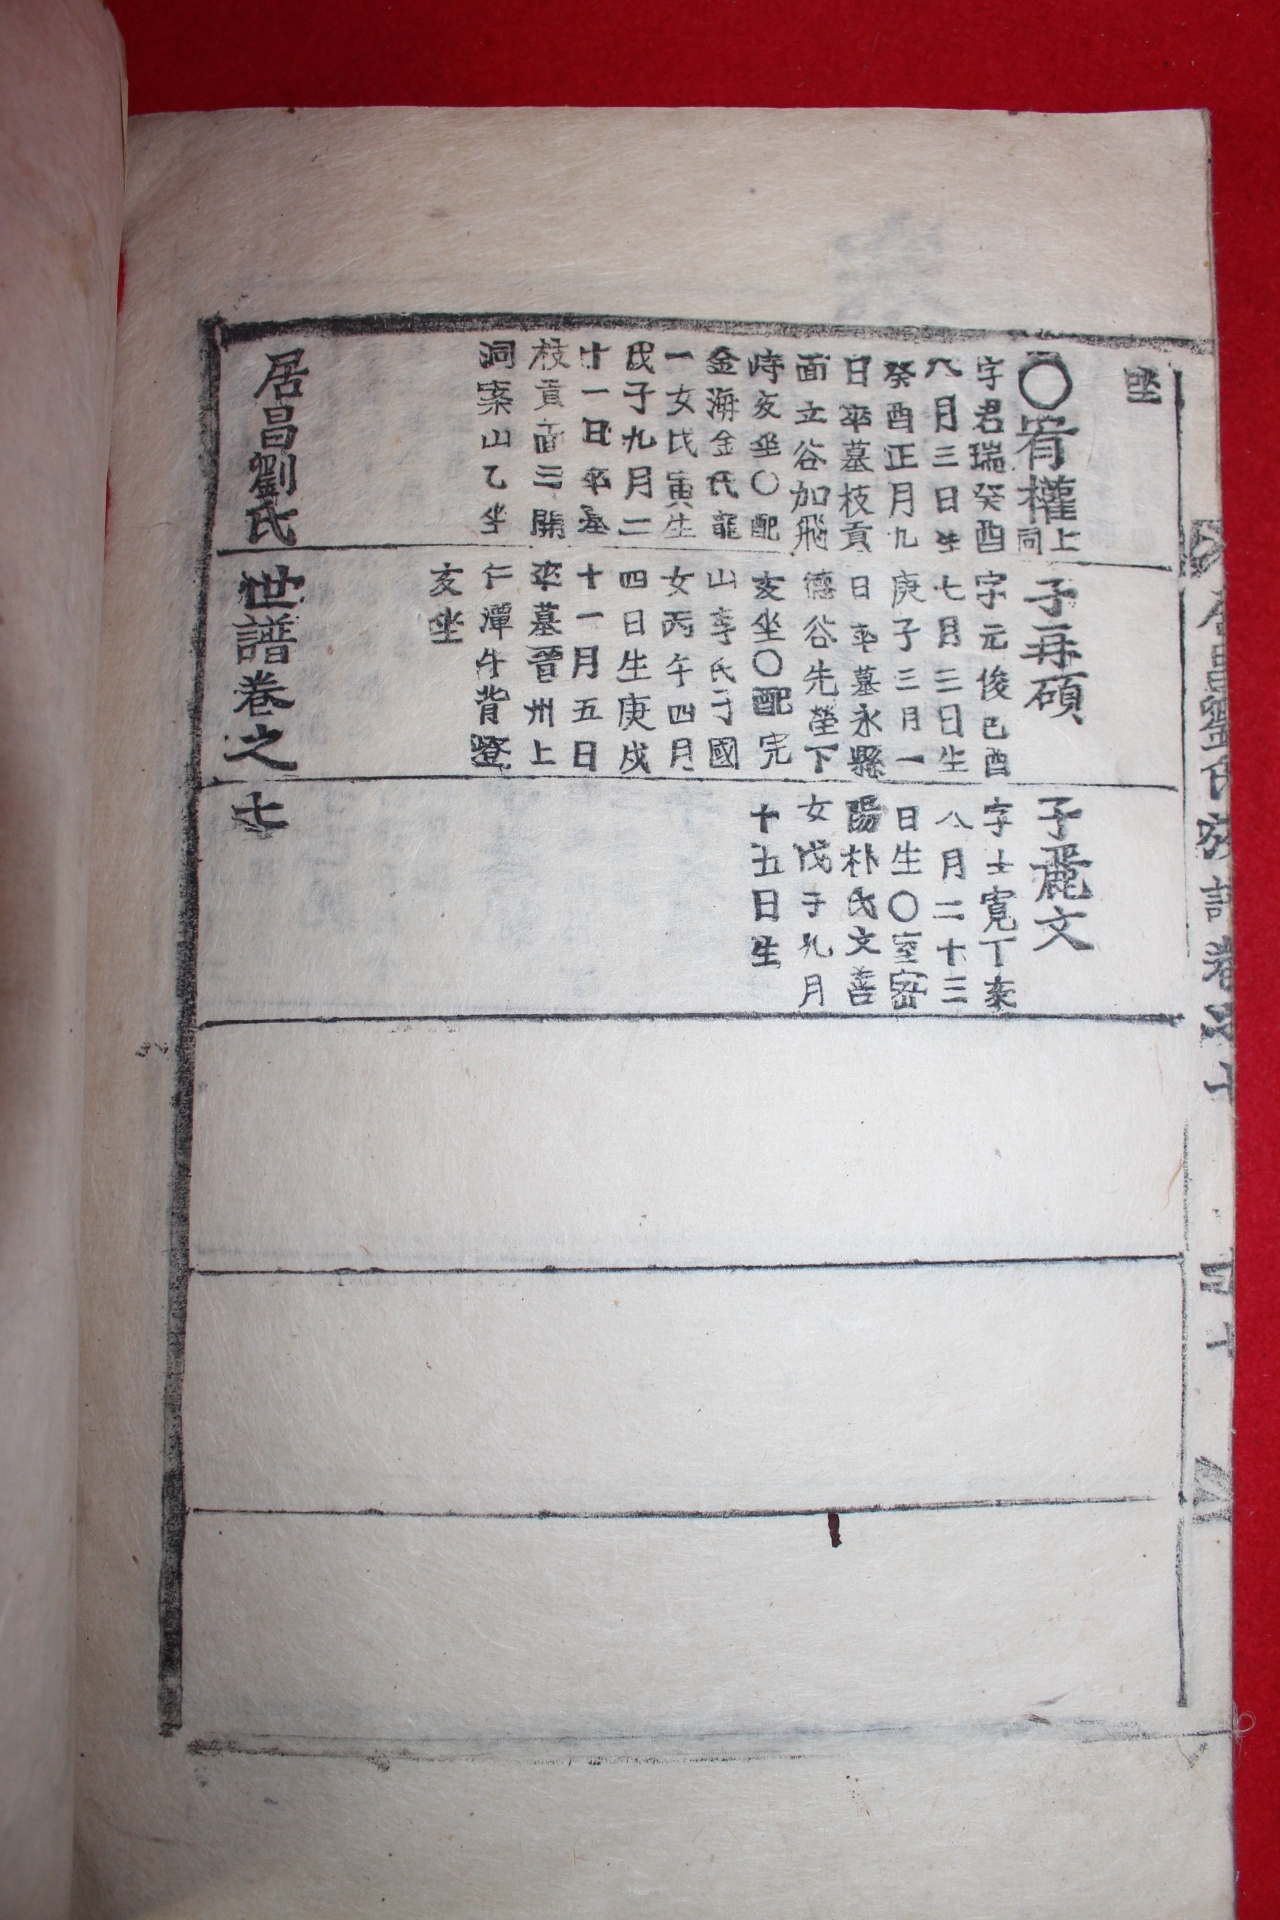 坐
〇宥權 上同
字君瑞癸酉
八月三日生
癸酉正月九
日卒墓枝貢
面立谷加飛
峙亥坐〇配
金海金氏龍
一女戊寅生
戊子九月二
十一日卒墓
枝貢面三開
洞案山乙坐
子再碩
字元俊己酉
七月三日生
庚子三月一
日卒墓永縣
德谷先塋下
亥坐〇配完
山李氏子國
女丙午四月
四日生庚戌
十一月五日
卒墓晉州上
仁潭牛背嶝
亥坐
子麗文
字士寬丁亥
八月二十三
日生〇室密
陽朴氏文善
女戊子九月
十五日生
居昌劉氏世譜卷之七
居昌劉氏族譜卷之七